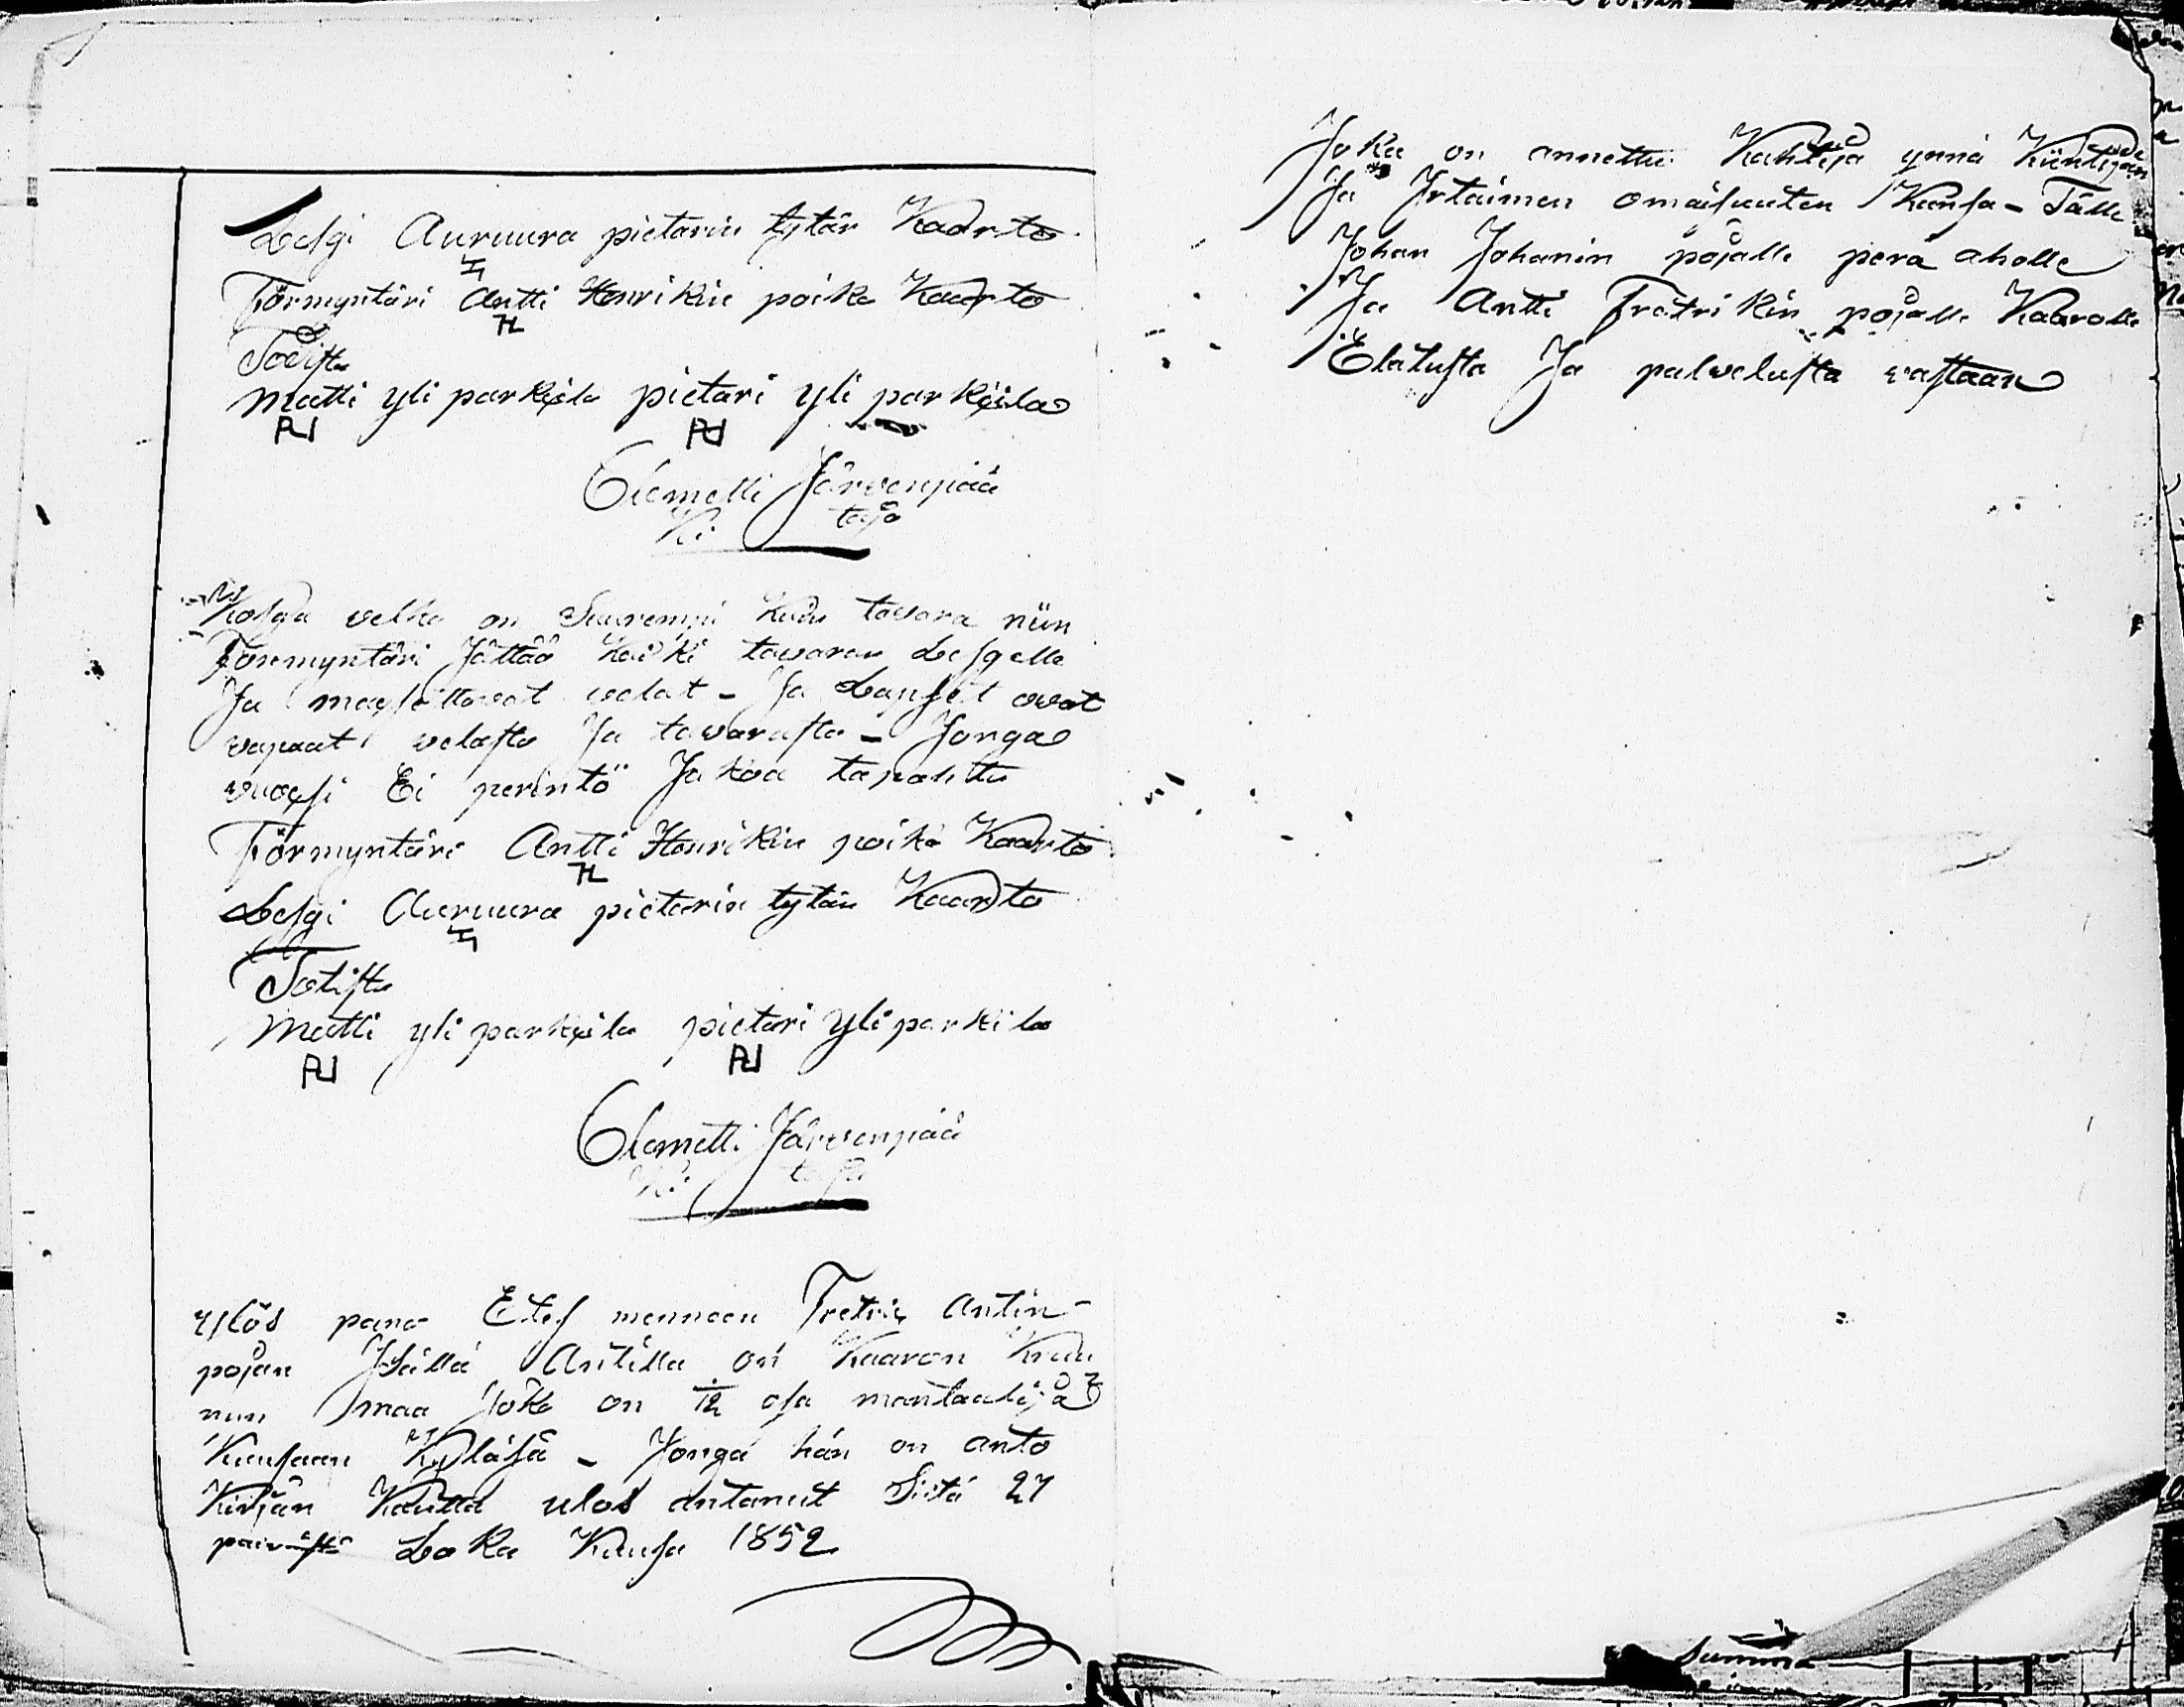 Lesgi Auruura pietarin tytär Kaarto
Förmyntäri Antti Henrikin poika Kaarto
Todista
Matti yli parkkila pietari yli parkkila
Clemetti Järvenpää
Koska velka on Suurempi Kuin tavara niin
Förmyntäri Jättää Kaikki tavaran Lesgelle
Ja velat - Ja Lapset ovat
vapaat velasta Ja tavarasta - Jonga
vuoksi Ei perintö Jakoa tapahtu
Förmyntäri Antti Henrikin poika Kaarto
Lesgi Auruura pietarin tytär Kaarto
Totista
Matti yli parkkila pietari yli parkila
Clemetti Järvenpää
ylös pano Antin
pojan Isällä Antilla on Kaaron
maa Joka on 1/12 osa mantaalija
Kylässä - Jonga hän on anto
Kirjan Kautta ulos antanut Siitä 27
päivästä Loka Kuusa 1852
Joka on annettu ynnä
Ja Irtaimen omaisuuten Kansa - Tälle
Johan Johanin pojalle perä aholle
Ja Antti Frätrikin pojalle Kaarolle
Elatusta Ja palvelusta vastaan
Summa